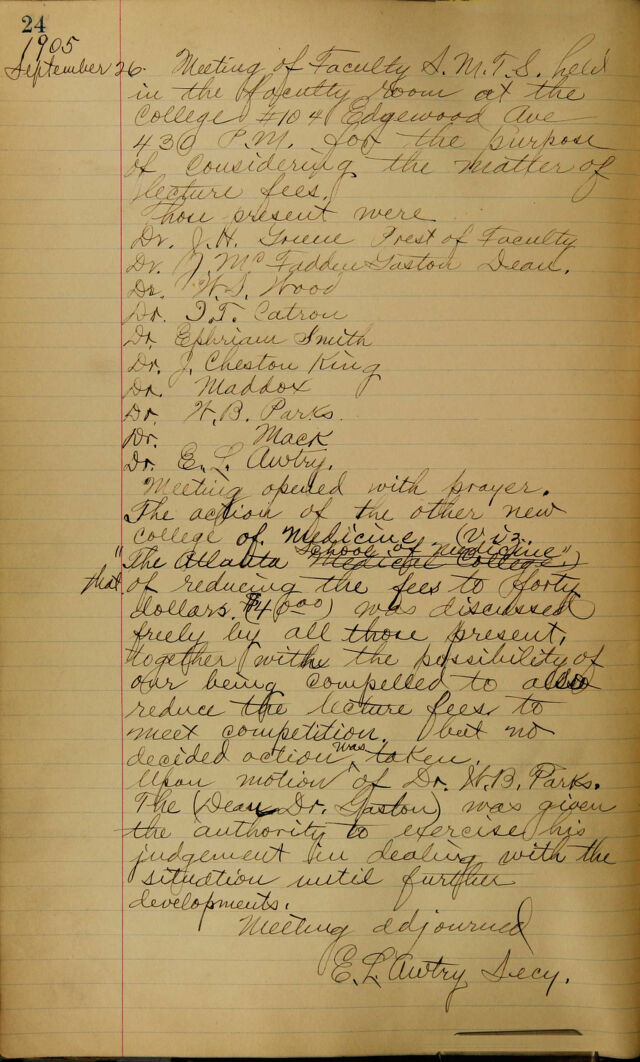 24
1905
September 26. Meeting of Faculty S. M. T. S. held
in the faculty room at the
college #104 Edgewood Ave
430 P.M. for the purpose
of considering the matter of
lecture fees.
Those present were
Dr. J. H. Goss Prest of Faculty
Dr. J. McFadden Gaston Dean.
Dr. W. S. Wood
Dr. T. T. Catron
Dr. Ephriam Smith
Dr. J. Cheston King
Dr. Maddox
Dr. W. B. Parks.
Dr. Mack
Dr. E. L. Awtry.
Meeting opened with prayer.
The action of the other new
college of medicine, (Viz.
"The Atlanta Medical College School of Medicine".)
that of reducing the fees to forty
dollars. $40.00) was discussed
freely by all those present,
together with the possibility of
our being compelled to also
reduce the lecture fees, to
meet competition. but no
decided action was taken.
Upon motion of Dr. W. B. Parks.
The (Dean Dr. Gaston) was given
the authority to exercise his
judgement in dealing with the
situation until further
developments.
Meeting adjourned
E. L. Awtry Secy.